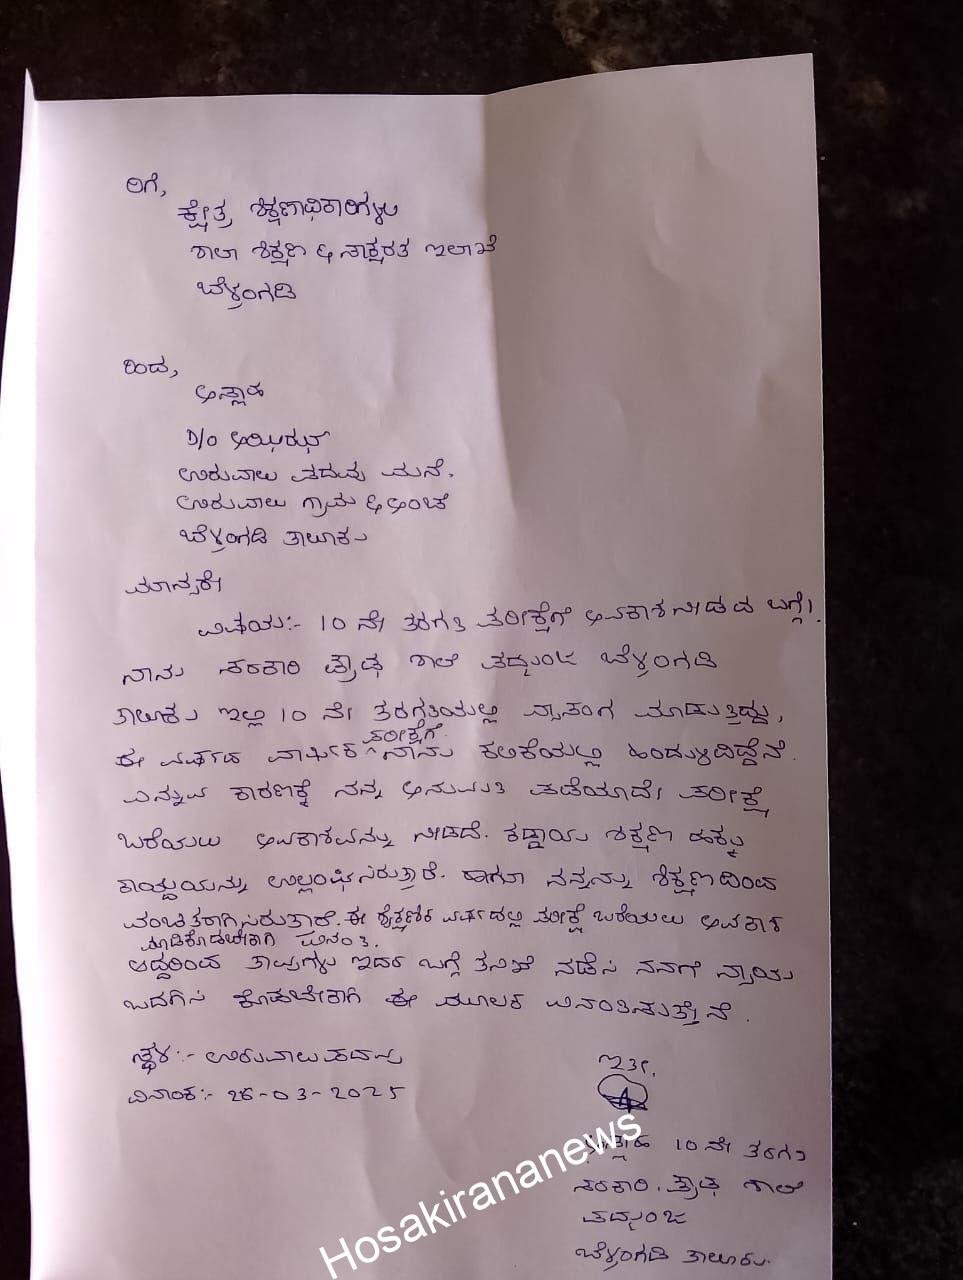 ರಿಗೆ,
ಕ್ಷೇತ್ರ ಶಿಕ್ಷಣಾಧಿಕಾರಿಗಳು
ಶಾಲಾ ಶಿಕ್ಷಣ & ಸಾಕ್ಷರತ ಇಲಾಖೆ
ಬೆಳ್ತಂಗಡಿ
ರಿಂದ,
D/O
ಉರುವಾಲು ಪದವು ಮನೆ.
ಉರುವಾಲು ಗ್ರಾಮ & ಅಂಚೆ
ಬೆಳ್ತಂಗಡಿ ತಾಲೂಕು
ಮಾನ್ಯರೇ
ವಿಷಯ:- 10 ನೇ ತರಗತಿ ಪರೀಕ್ಷೆಗೆ ಅವಕಾಶ ನೀಡದ ಬಗ್ಗೆ.
ನಾನು ಸರಕಾರಿ ಪ್ರೌಢ ಶಾಲೆ ಪದ್ಮುಂಜ ಬೆಳ್ತಂಗಡಿ
ತಾಲೂಕು ಇಲ್ಲಿ 10 ನೇ ತರಗತಿಯಲ್ಲಿ ವ್ಯಾಸಂಗ ಮಾಡುತ್ತಿದ್ದು,
ಈ ವರ್ಷದ ವಾರ್ಷಿಕ ಪರೀಕ್ಷೆಗೆ ನಾನು ಕಲಿಕೆಯಲ್ಲಿ ಹಿಂದುಳಿದಿದ್ದೇನೆ.
ಎನ್ನುವ ಕಾರಣಕ್ಕೆ ನನ್ನ ಅನುಮತಿ ಪಡೆಯಾದೇ ಪರೀಕ್ಷೆ
ಬರೆಯಲು ಅವಕಾಶವನ್ನು ನೀಡದೆ. ಕಡ್ಡಾಯ ಶಿಕ್ಷಣ ಹಕ್ಕು
ಕಾಯ್ದೆಯನ್ನು ಉಲ್ಲಂಘಿಸಿರುತ್ತಾರೆ. ಹಾಗೂ ನನ್ನನ್ನು ಶಿಕ್ಷಣದಿಂದ
ವಂಚಿತರಾಗಿಸಿರುತ್ತಾರೆ. ಈ ಶೈಕ್ಷಣಿಕ ವರ್ಷದಲ್ಲಿ ಪರೀಕ್ಷೆ ಬರೆಯಲು ಅವಕಾಶ
ಮಾಡಿಕೊಡಬೇಕಾಗಿ ವಿನಂತಿ.
ಆದ್ದರಿಂದ ತಾವುಗಳು ಇದರ ಬಗ್ಗೆ ತನಿಖೆ ನಡೆಸಿ ನನಗೆ ನ್ಯಾಯ
ಒದಗಿಸಿ ಕೊಡಬೇಕಾಗಿ ಈ ಮೂಲಕ ವಿನಂತಿಸುತ್ತೇನೆ.
ಸ್ಥಳ:- ಉರುವಾಲು ಪದವು
ದಿನಾಂಕ:- 26-03-2025
ಇತಿ.
10 ನೇ ತರಗತಿ
ಸರಕಾರಿ. ಪ್ರೌಢ ಶಾಲೆ
ಪದ್ಮುಂಜ
ಬೆಳ್ತಂಗಡಿ ತಾಲೂಕು.
Hosakirananews